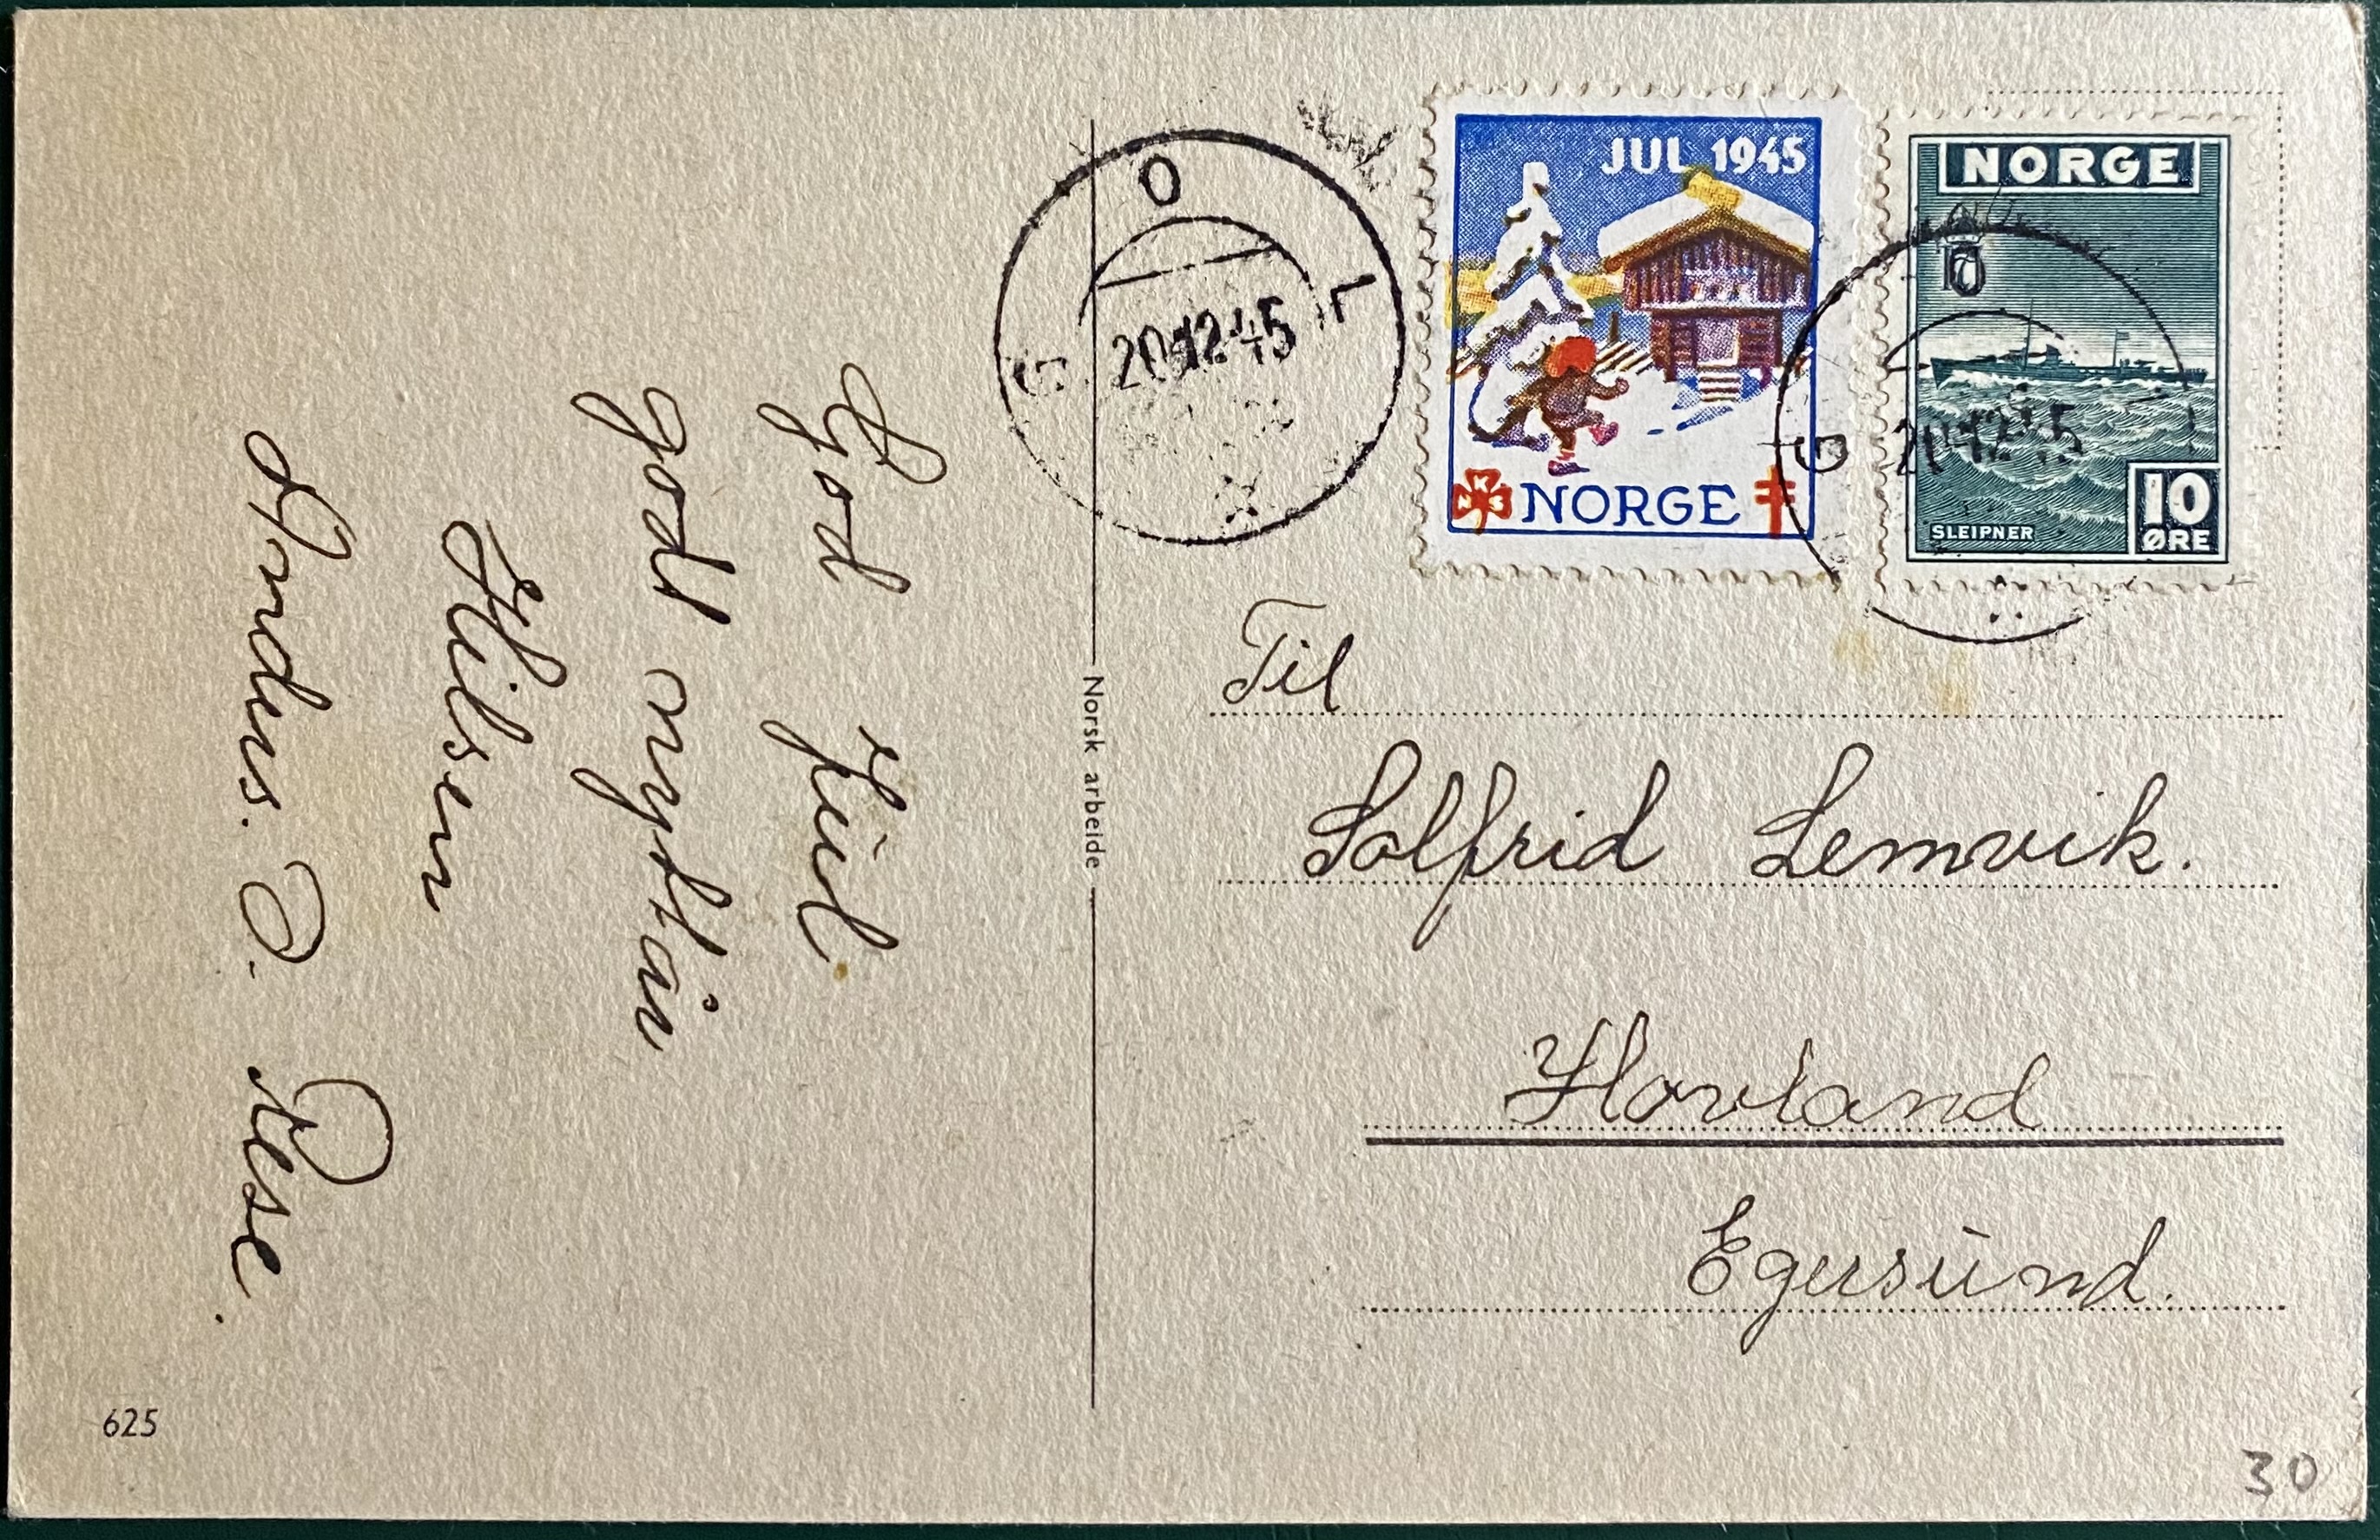 God Jul
godt nyttår
Hilsen
Andreas. O. Rese.
Norsk arbeide
625
G O L
20.12.45
JUL 1945
NORGE
NORGE
10
SLEIPNER
10
ØRE
G
20.12.45
Til
Solfrid Lemvik.
Hovland
Egersund.
30